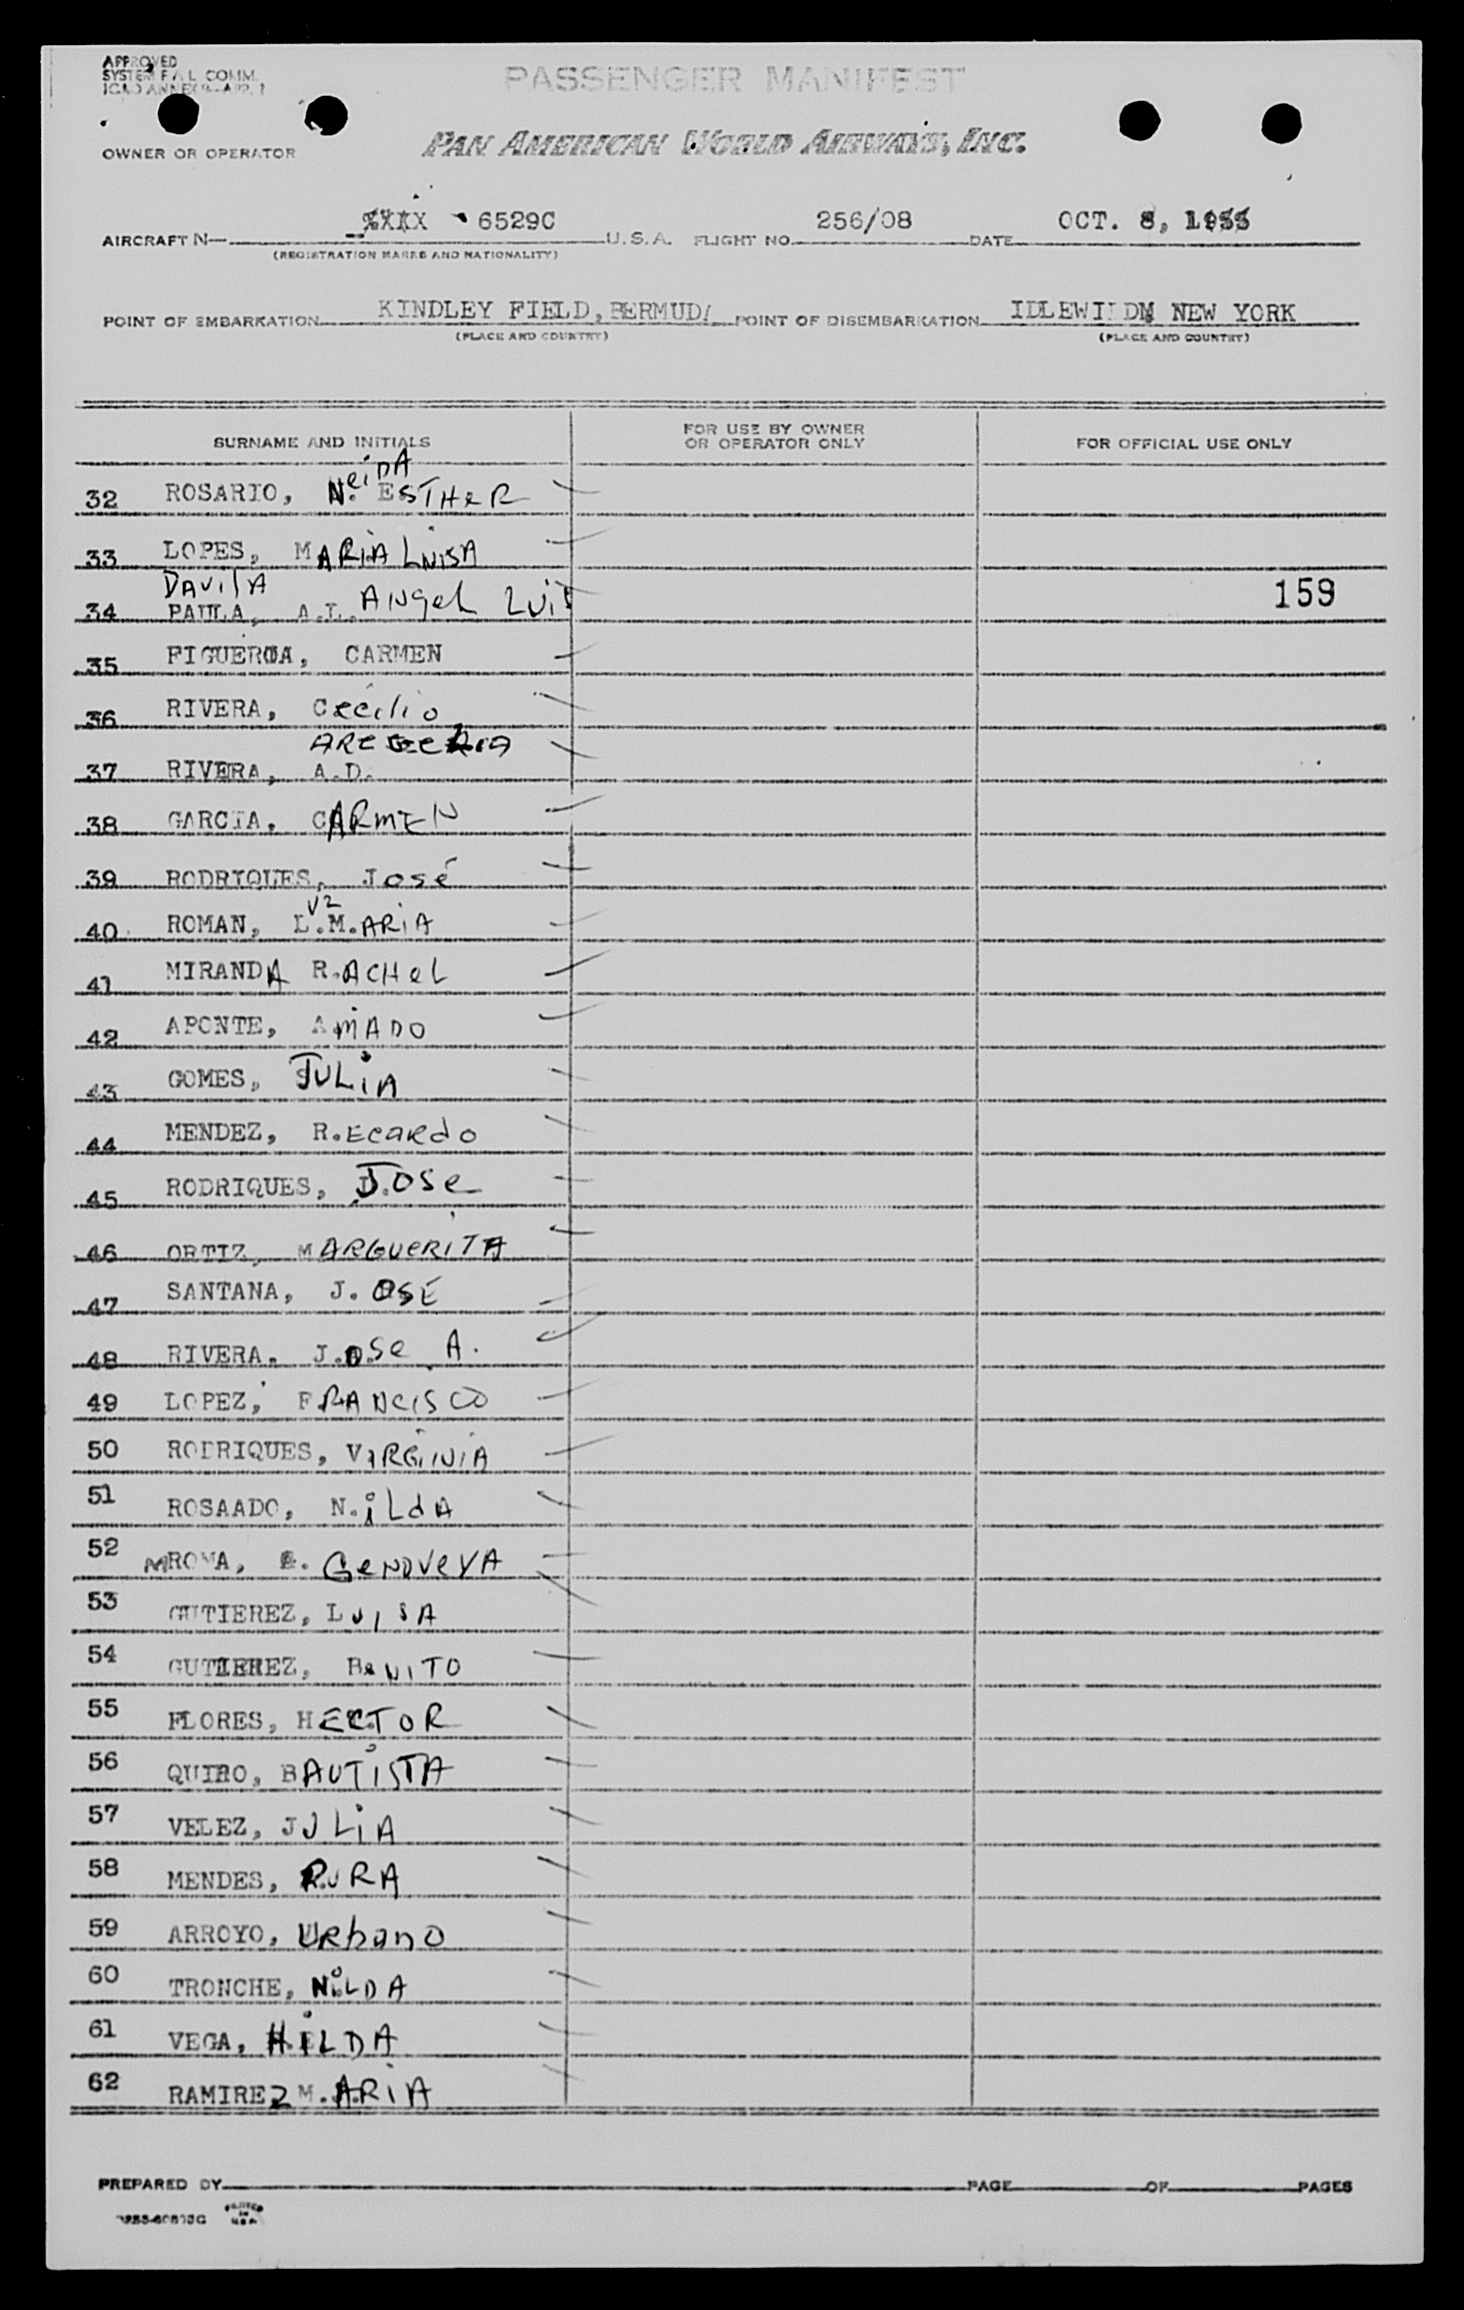 APPROVED
SYSTEM F A L COMM.
ICAO ANNEX 9-APP. 1
PASSENGER MANIFEST
PAN AMERICAN WORLD AIRWAYS, INC.
OWNER OR OPERATOR
AIRCRAFT N— 6529C U.S.A. FLIGHT NO. 256/08 DATE OCT. 8, 1955
(REGISTRATION MARKS AND NATIONALITY)
POINT OF EMBARKATION KINDLEY FIELD, BERMUDA POINT OF DISEMBARKATION IDLEWILDM NEW YORK
(PLACE AND COUNTRY) (PLACE AND COUNTRY)
SURNAME AND INITIALS FOR USE BY OWNER OR OPERATOR ONLY FOR OFFICIAL USE ONLY
32 ROSARIO, NeiDA ESTHeR
33 LOPES, MARiA LuiSA
DAVilA
34 PAULA, A.L. ANgeL LUiS 159
35 FIGUEROA, CARMEN
36 RIVERA, Cecilio
37 RIVERA, A.D.
38 GARCIA, CARMEN
39 RODRIQUES, José
40 ROMAN, LUZ M.ARiA
41 MIRANDA R.ACHeL
42 APONTE, AMADO
43 GOMES, JULiA
44 MENDEZ, R.EcaRdo
45 RODRIQUES, JOSe
46 ORTIZ, MARGUeRiTA
47 SANTANA, J. OSE
48 RIVERA, J.OSe A.
49 LOPEZ, FRANCiSCO
50 RODRIQUES, ViRGiNiA
51 ROSAADO, N.iLdA
52 MROMA, GeNOVeVA
53 GUTIEREZ, LUiSA
54 GUTIEREZ, BeNiTO
55 FLORES, HECTOR
56 QUIRO, BAUTiSTA
57 VELEZ, JULiA
58 MENDES, PURA
59 ARROYO, URbanO
60 TRONCHE, NiLDA
61 VEGA, HiLDA
62 RAMIREZ M.ARiA
PREPARED BY PAGE OF PAGES
PRINTED IN U.S.A.